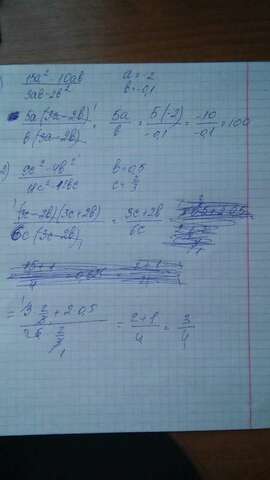 ) 15a² - 10ab / 3ab - 2b² a = -2 b = -0,1
5a(3a - 2b) / b(3a - 2b) = 5a / b = 5(-2) / -0,1 = -10 / -0,1 = 100
2) 9c² - 4b² / 18c² - 12bc b = 0,5 c = 2/3
(3c - 2b)(3c + 2b) / 6c(3c - 2b) = 3c + 2b / 6c
= 3 · 2/3 + 2 · 0,5 / 6 · 2/3 = 2 + 1 / 4 = 3 / 4